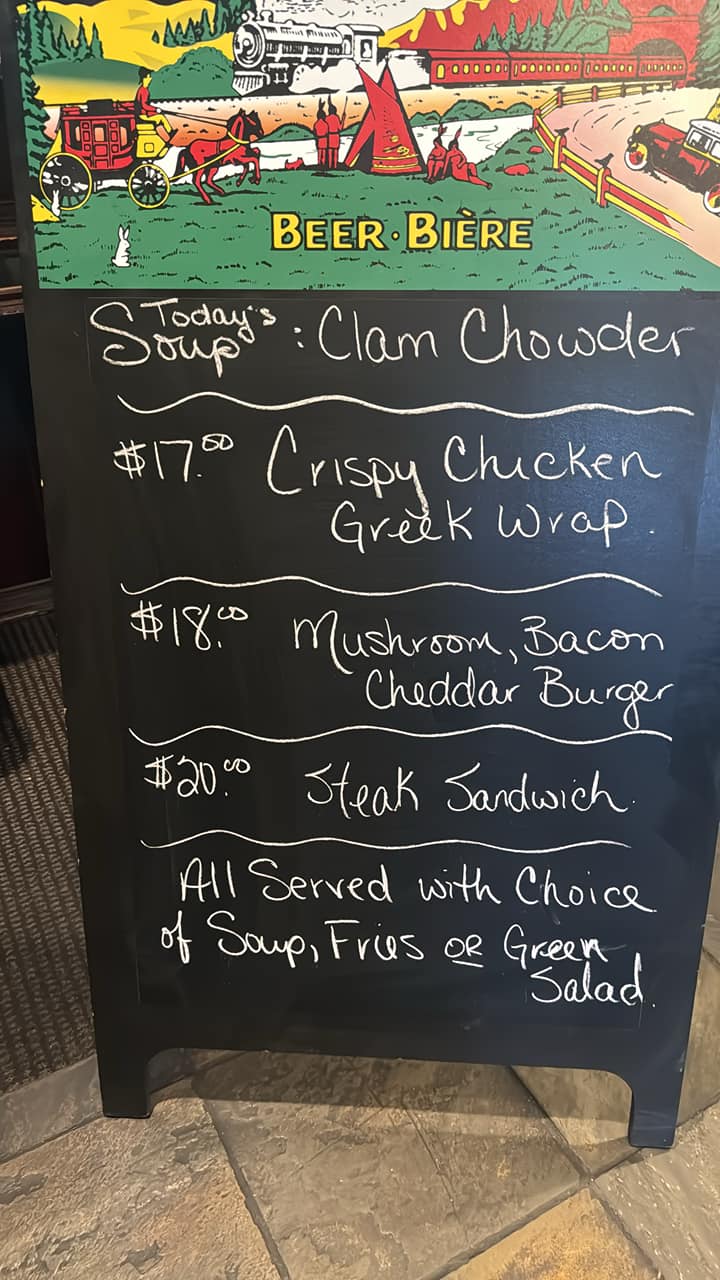 BEER · BIÈRE
Today's
Soup : Clam Chowder
$17.50 Crispy Chicken
Greek Wrap.
$18.00 Mushroom, Bacon
Cheddar Burger
$20.00 Steak Sandwich.
All Served with Choice
of Soup, Fries OR Green
Salad.